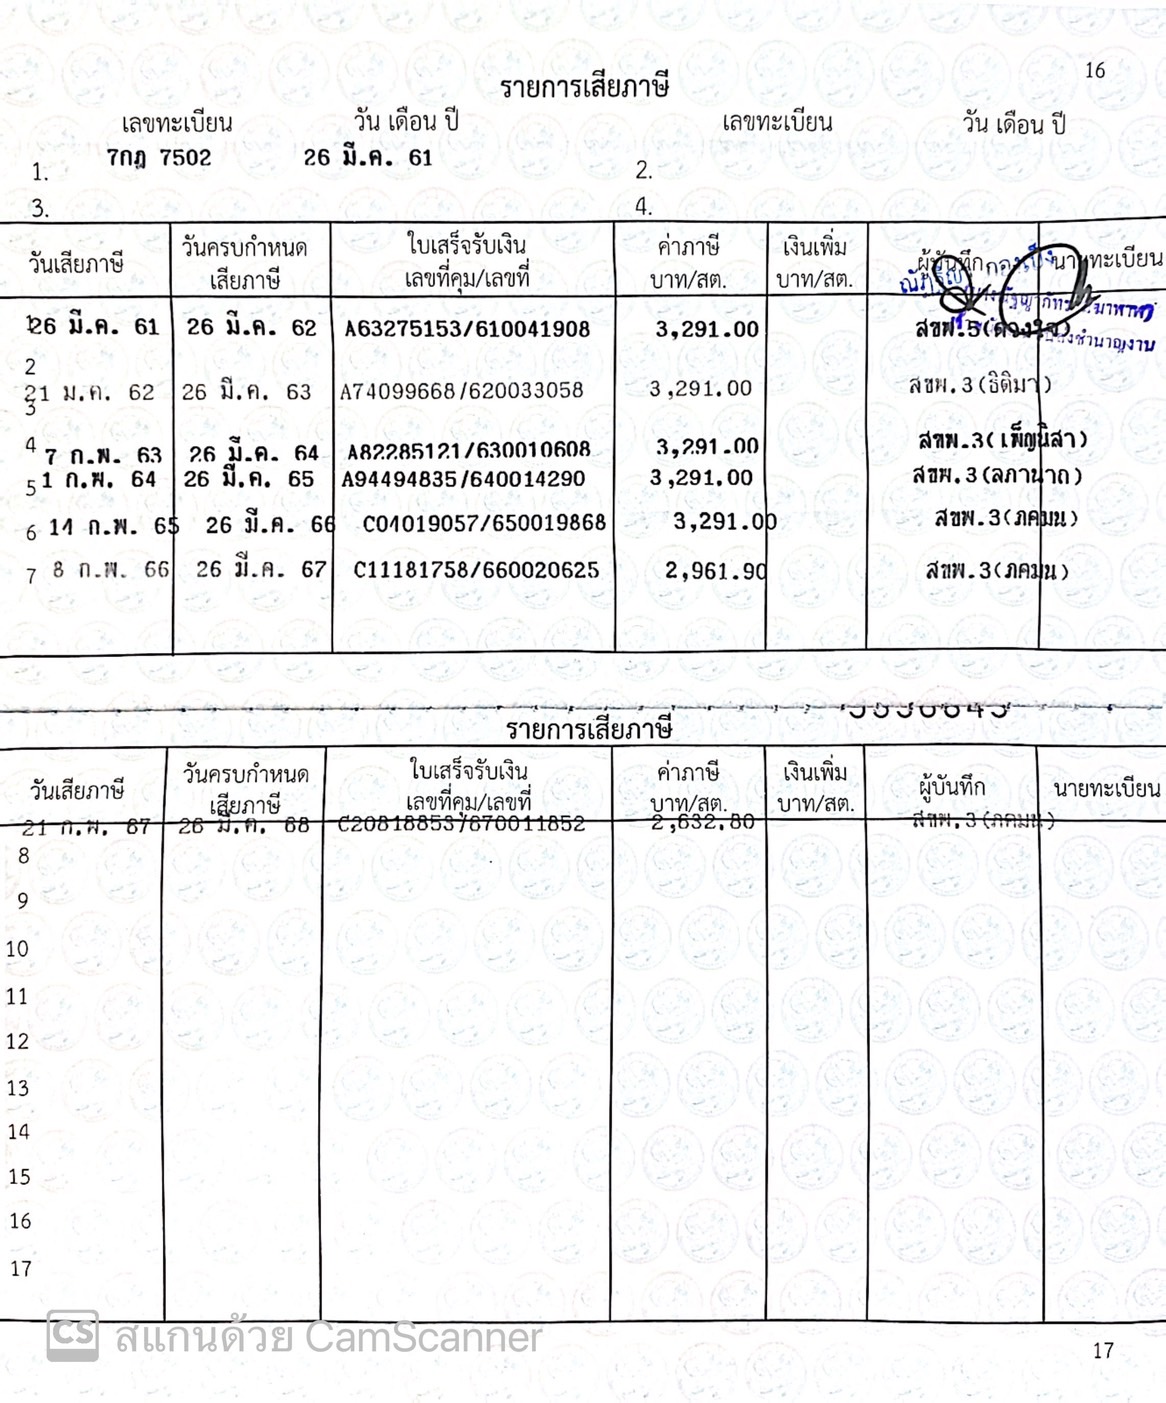 16
รายการเสียภาษี
เลขทะเบียน วัน เดือน ปี เลขทะเบียน วัน เดือน ปี
1. 7กฎ 7502 26 มี.ค. 61 2.
3. 4.
วันเสียภาษี วันครบกำหนดเสียภาษี ใบเสร็จรับเงิน เลขที่คุม/เลขที่ ค่าภาษี บาท/สต. เงินเพิ่ม บาท/สต. ผู้บันทึก นายทะเบียน
1 26 มี.ค. 61 26 มี.ค. 62 A63275153/610041908 3,291.00 สขพ.5(ดวงใจ)
2
21 ม.ค. 62 26 มี.ค. 63 A74099668/620033058 3,291.00 สขพ.3(ธิติมา)
3
4 7 ก.พ. 63 26 มี.ค. 64 A82285121/630010608 3,291.00 สขพ.3(เพ็ญนิสา)
5 1 ก.พ. 64 26 มี.ค. 65 A94494835/640014290 3,291.00 สขพ.3(ลภานาถ)
6 14 ก.พ. 65 26 มี.ค. 66 C04019057/650019868 3,291.00 สขพ.3(ภคมน)
7 8 ก.พ. 66 26 มี.ค. 67 C11181758/660020625 2,961.90 สขพ.3(ภคมน)
รายการเสียภาษี
วันเสียภาษี วันครบกำหนดเสียภาษี ใบเสร็จรับเงิน เลขที่คุม/เลขที่ ค่าภาษี บาท/สต. เงินเพิ่ม บาท/สต. ผู้บันทึก นายทะเบียน
21 ก.พ. 67 26 มี.ค. 68 C20818853/670011852 2,632.80 สขพ.3(ภคมน)
8
9
10
11
12
13
14
15
16
17
CS สแกนด้วย CamScanner
17